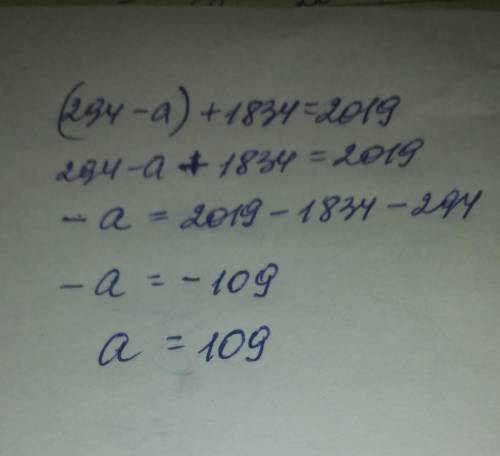 (294-a)+1834=2019
294-a+1834=2019
-a=2019-1834-294
-a=-109
a=109